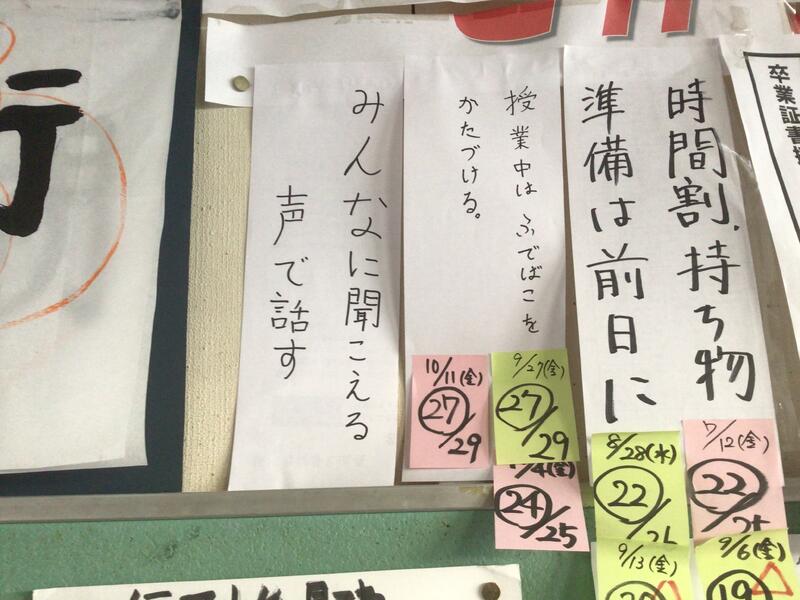 行
みんなに聞こえる
声で話す
授業中は ふでばこを
かたづける。
時間割、持ち物
準備は前日に
卒業証書
10/11(金)
27/29
9/27(金)
27/29
/4(金)
24/25
8/28(水)
22/
7/12(金)
22/
9/13(金)
9/6(金)
19